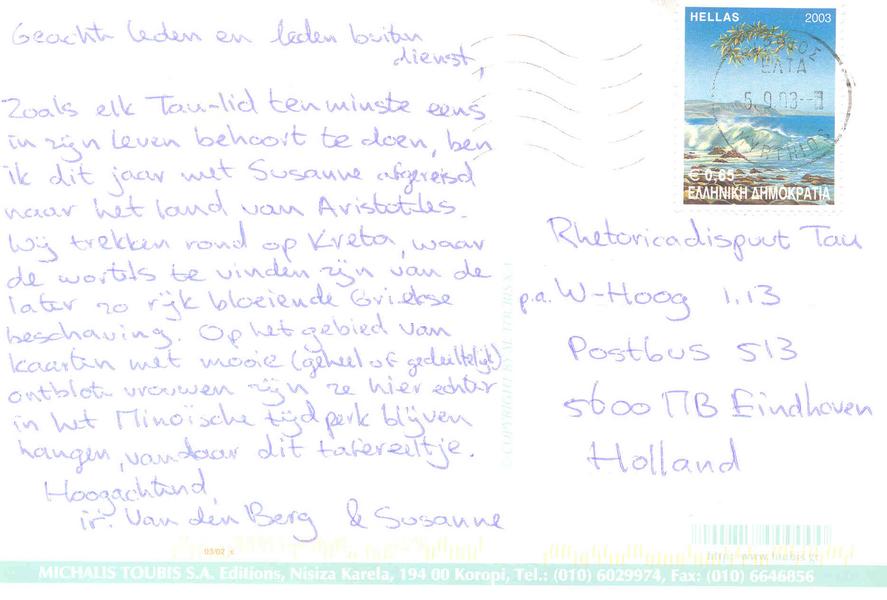 Geachte leden en leden buiten
dienst,
Zoals elk Tau-lid tenminste eens
in zijn leven behoort te doen, ben
ik dit jaar met Susanne afgereisd
naar het land van Aristoteles.
Wij trekken rond op Kreta, waar
de wortels te vinden zijn van de
later zo rijk bloeiende Griekse
beschaving. Op het gebied van
kaarten met mooie (geheel of gedeeltelijk)
ontblote vrouwen zijn ze hier echter
in het Minoïsche tijdperk blijven
hangen, vandaar dit tafereeltje.
Hoogachtend,
ir. Van den Berg & Susanne
HELLAS 2003
ΕΛΤΑ
5.9.03
€ 0,65
ΕΛΛΗΝΙΚΗ ΔΗΜΟΚΡΑΤΙΑ
Rhetoricadispuut Tau
p.a. W-Hoog 1.13
Postbus 513
5600 MB Eindhoven
Holland
© COPYRIGHT BY M. TOUBIS S.A.
03/02 c
http: www.toubis.gr
MICHALIS TOUBIS S.A. Editions, Nisiza Karela, 194 00 Koropi, Tel.: (010) 6029974, Fax: (010) 6646856